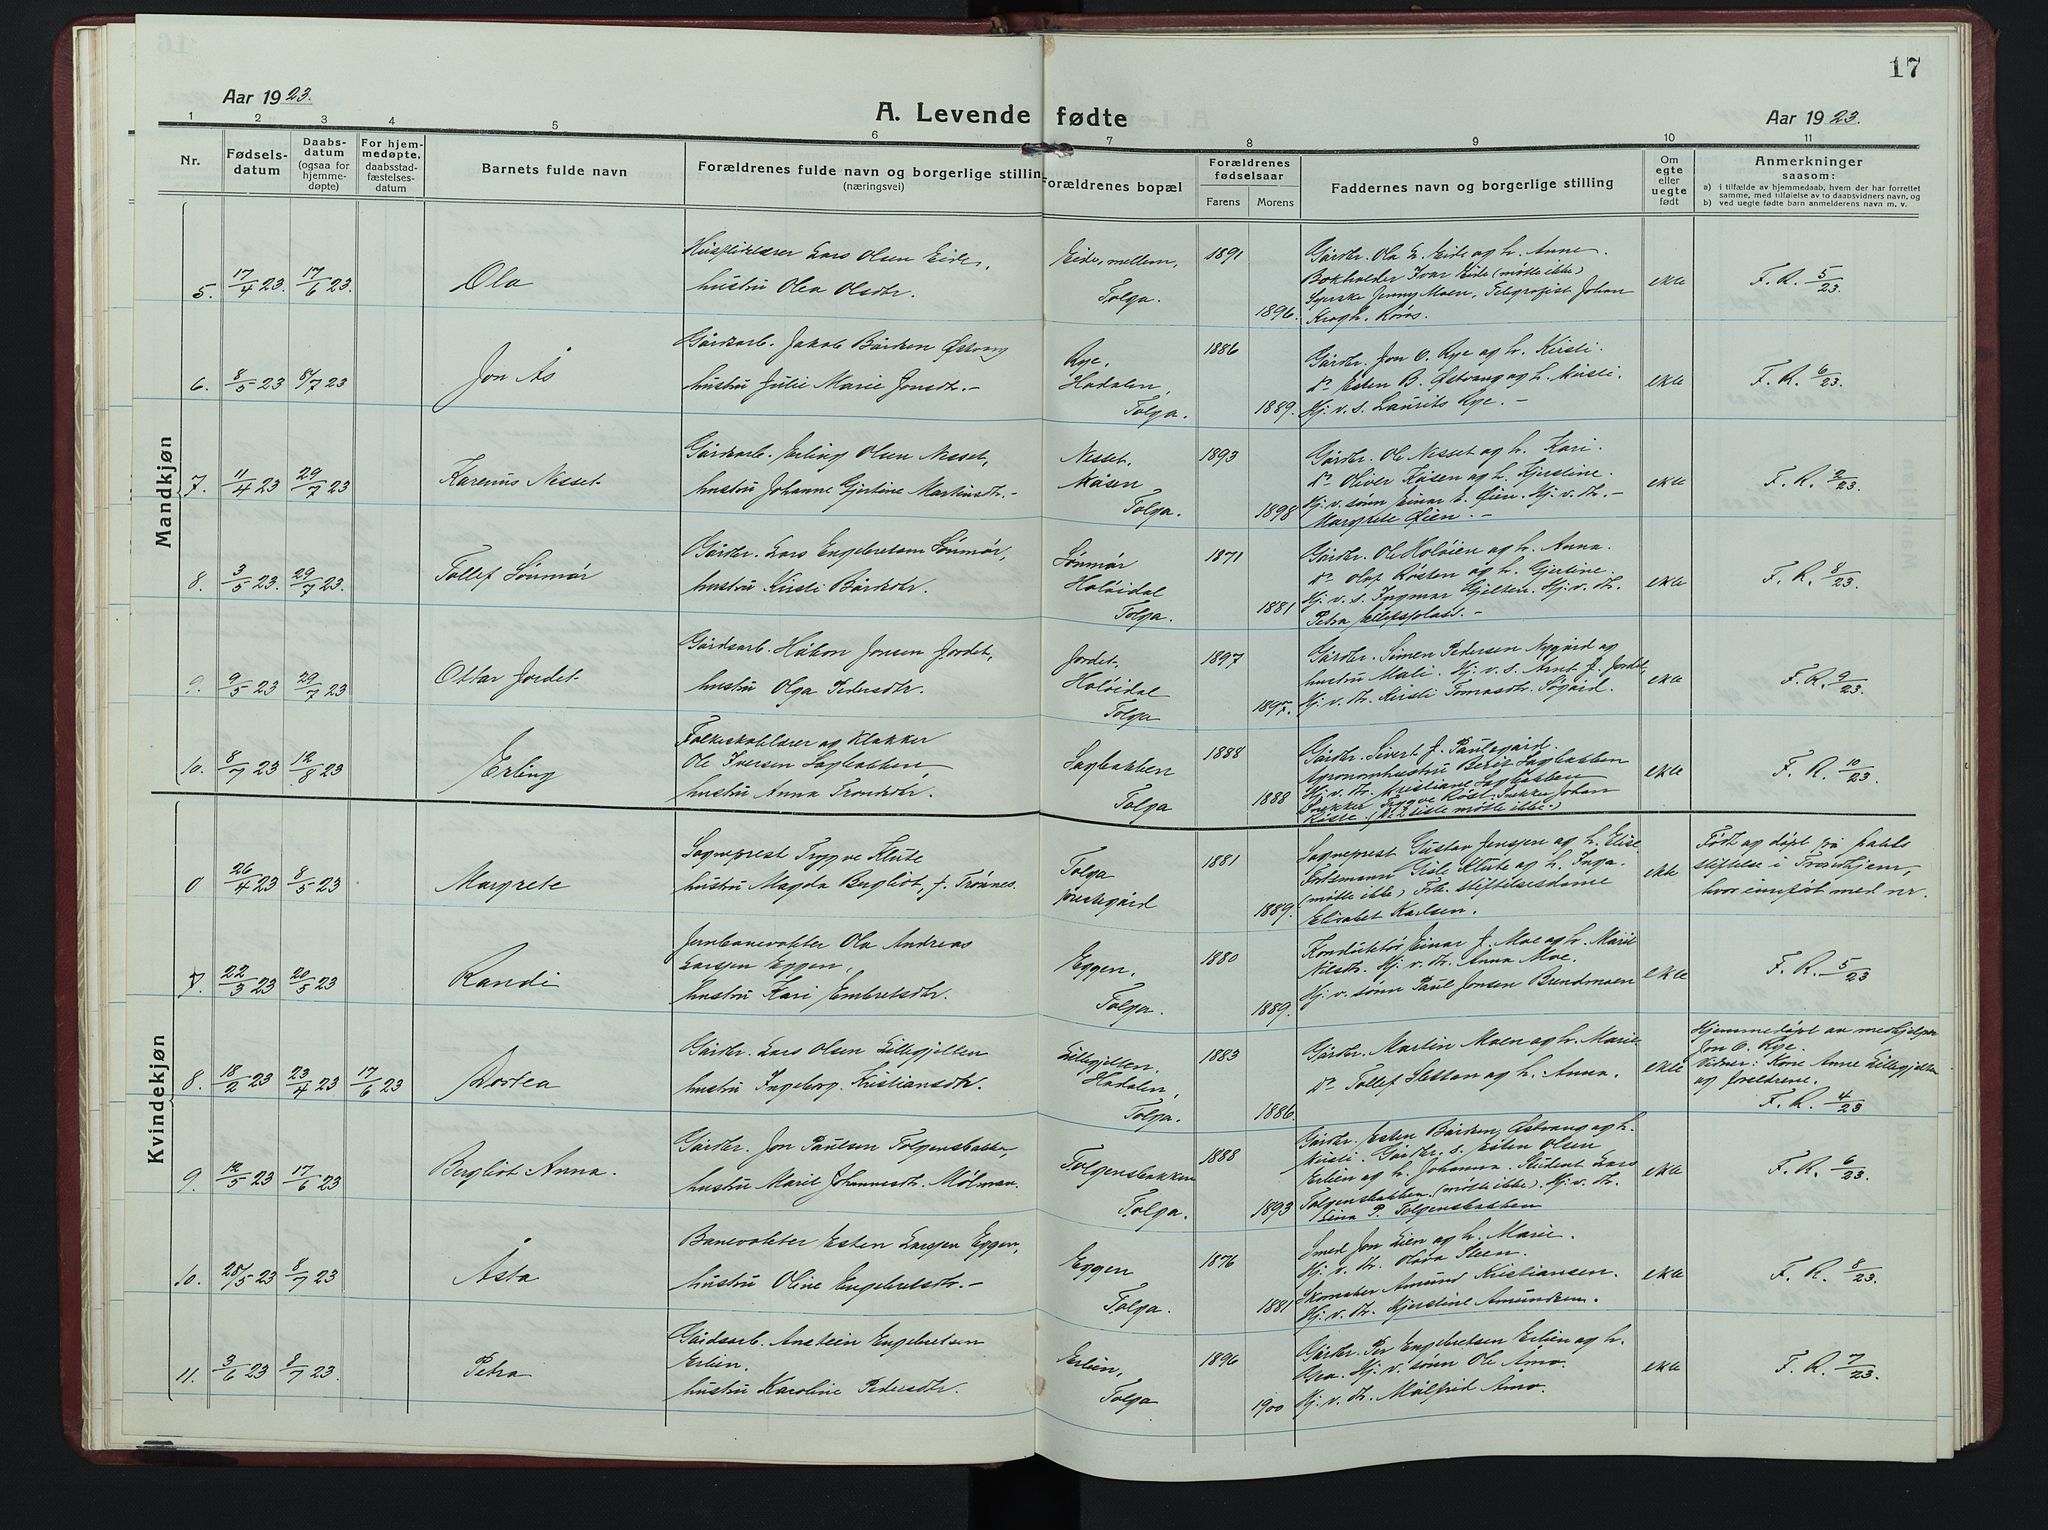 17
Aar 1923.
A. Levende fødte
Aar 1923.
1 2 3 4 5 6 7 8 9 10 11
Nr.
Fødselsdatum
Daabsdatum (ogsaa for hjemmedøpte)
For hjemmedøpte, daabsstadfæstelsesdatum
Barnets fulde navn
Forældrenes fulde navn og borgerlige stilling (næringsvei)
Forældrenes bopæl
Forældrenes fødselsaar
Farens
Morens
Faddernes navn og borgerlige stilling
Om egte eller uegte født
Anmerkninger
saasom:
a) i tilfælde av hjemmedaab, hvem der har forrettet samme, med tilføielse av to daabsvidners navn, og
b) ved uegte fødte barn anmelderens navn m. v.
Mandkjøn
5. 17/4 23 17/6 23.
Ola
Husflidslærer Lars Olsen Eide,
hustru Olea Olsdtr.
Eide, mellem,
Tolga.
1891
1896.
Gårdbr. Ola L. Eide og h. Anne.
Bokholder Ivar Eide (møtte ikke)
Jenny Moen, Telegrafist Johan
Krogh. Røros.
ekte
F. R. 5/23.
6. 8/5 23 8/7 23
Jon Ås
Gårdsarb. Jakob Bårdsen Østvang
hustru Julie Marie Jonsdtr. -
Rye,
Hodalen,
Tolga.
1886
1889.
Gårdbr. Jon O. Rye og h. Kirsti.
do Esten B. Østvang og h. Kirsti.
Hj. v. s. Laurits Rye. -
ekte
F. R. 6/23.
7. 11/4 23 29/7 23
Karenus Nesset
Gårdsarb. Erling Olsen Nesset,
hustru Johanne Gjertine Martinsdtr. -
Nesset.
Tolga.
1893
1898
Gårdbr. Ole Nesset og h. Kari.
do Oliver Kåsen og h. Kjerstine.
Hj. v. sønn Einar E. Øien. Hj. v. dtr. -
Margrete Øien. -
ekte
F. R. 2/23.
8. 3/5 23. 29/7 23.
Tollef Sønmør
Gårdbr. Lars Engebretsen Sønmør,
hustru Kirsti Bårdsdtr.
Sønmør
Holøidal
Tolga.
1871
1881
Gårdbr. Ole Holøien og h. Anna.
do Olaf Røsten og h. Gjertine.
Hj. v. s. Ingmar Gjelten. Hj. v. dtr.
Petra Ellefsplass. -
ekte
F. R. 8/23.
9. 9/5 23 29/7 23
Ottar Jordet
Gårdsarb. Håkon Jonsen Jordet,
hustru Olga Pedersdtr.
Jordet,
Holøidal
Tolga
1897
1897.
Gårdbr. Simen Pedersen Nygård og
hustru Mali. Hj. v. s. Arnt J. Jordet,
Hj. v. dtr. Kirsti Tomasdtr. Søgård.
ekte
F. R. 9/23.
10. 8/7 23 12/8 23
Erling
Folkeskolelærer og klokker
Ole Iversen Sagbakken,
hustru Anna Trondsdtr.
Sagbakken
Tolga
1888
1888
Gårdbr. Sivert J. Paulsgård.
Agronomhustru Berit Sagbakken
Hj. v. dtr. Kristiane Sagbakken
Snekker Trygve Røst. Snekker Johan
(De 2 siste møtte ikke.)
ekte
F. R. 10/23.
Kvindekjøn
0 26/4 23 8/5 23
Margrete
Sogneprest Trygve Klute
hustru Magda Bergliot, f. Trønnes.
Tolga
prestegård
1881
1889.
Sogneprest Gustav Jenssen og h. Elise
Forstmann Gisle Klute og h. Inga.
(møtte ikke) Frk. stiftelsesdame
Elisabet Karlsen.
ekte
Født og døpt på
stiftelse i Trondhjem,
hvor innført med nr.
7. 22/3 23 20/5 23
Randi
Jernbanevokter Ola Andreas
Larsen Eggen,
hustru Kari Embretsdtr.
Eggen,
Tolga.
1880
1889.
Konduktør Einar J. Moe og h. Marit
Nilsdtr. Hj. v. dtr. Anna Moe.
Hj. v. sønn Paul Jonsen Brendmoen
ekte
F. R. 5/23
8. 18/2 23 23/4 23 17/6 23
Dortea
Gårdbr. Lars Olsen Lillegjelten
hustru Ingeborg Kristiansdtr.
Lillegjelten,
Hodalen,
Tolga.
1883
1886.
Gårdbr. Martin Moen og h. Marie
do Tollef Slettan og h. Anna.
ekte
Hjemmedøpt av medhjelper
Jon O. Rye.
Vidner: Kone Anne Lillegjelten
og foreldrene.
F. R. 4/23
9. 12/5 23 17/6 23
Bergliot Anna.
Gårdbr. Jon Paulsen Tolgensbakken,
hustru Marit Johannesdtr. Mølman.
Tolgensbakken
Tolga.
1888
1893
Gårdbr. Esten Bårdsen Østvang og h.
Kirsti. Gårdbr. s. Esten Olsen
Erlien og h. Johanna. Student Lars
Tolgensbakken (møtte ikke). Hj. v. dtr.
Lina P. Tolgensbakken
ekte
F. R. 6/23.
10. 28/5 23 8/7 23
Åsta
Banevokter Esten Larsen Eggen,
hustru Oline Engebretsdtr. -
Eggen
Tolga.
1876
1881
Smed Jon Lien og h. Marie.
Hj. v. dtr. Oliva Steen.
Skomaker Amund Kristiansen.
Hj. v. dtr. Kjerstine Amundsen.
ekte
F. R. 8/23.
11. 3/6 23 8/7 23.
Petra
Gårdsarb. Anstein Engebretsen
Erlien.
hustru Karoline Pedersdtr.
Erlien,
Tolga
1896
1900
Gårdbr. Per Engebretsen Erlien og h.
Gea. Hj. v. sønn Ole Åmo.
Hj. v. dtr. Målfrid Åmo.
ekte
F. R. 7/23.